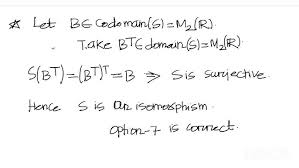 ☆ Let B∈Codomain(S)=M₂(R).
. Take Bᵀ∈domain(S)=M₂(R).
S(Bᵀ)=(Bᵀ)ᵀ=B ⇒ S is surjective.
Hence S is an isomorphism.
Option-7 is correct.